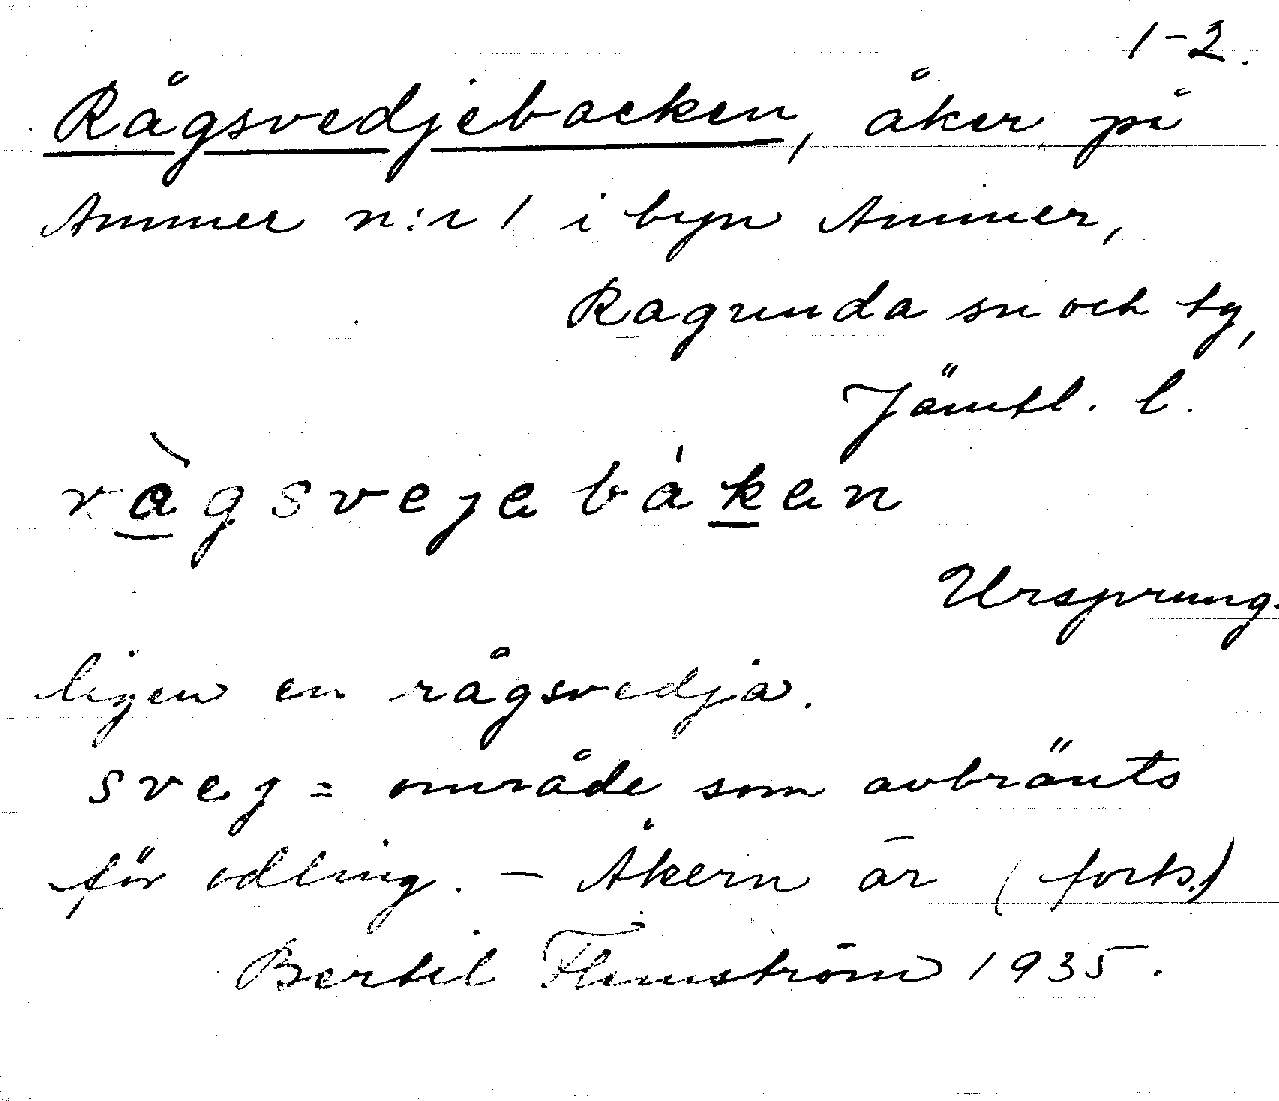 1-2.
Rågsvedjebacken, åker på
Ammer n:r 1 i byn Ammer,
Ragunda sn och tg,
Jämtl. l.
ràgsvejebákən
Ursprung-
ligen en rågsvedja.
svej = område som avbränts
för odling. - Åkern är (forts.)
Bertil Flemström 1935.